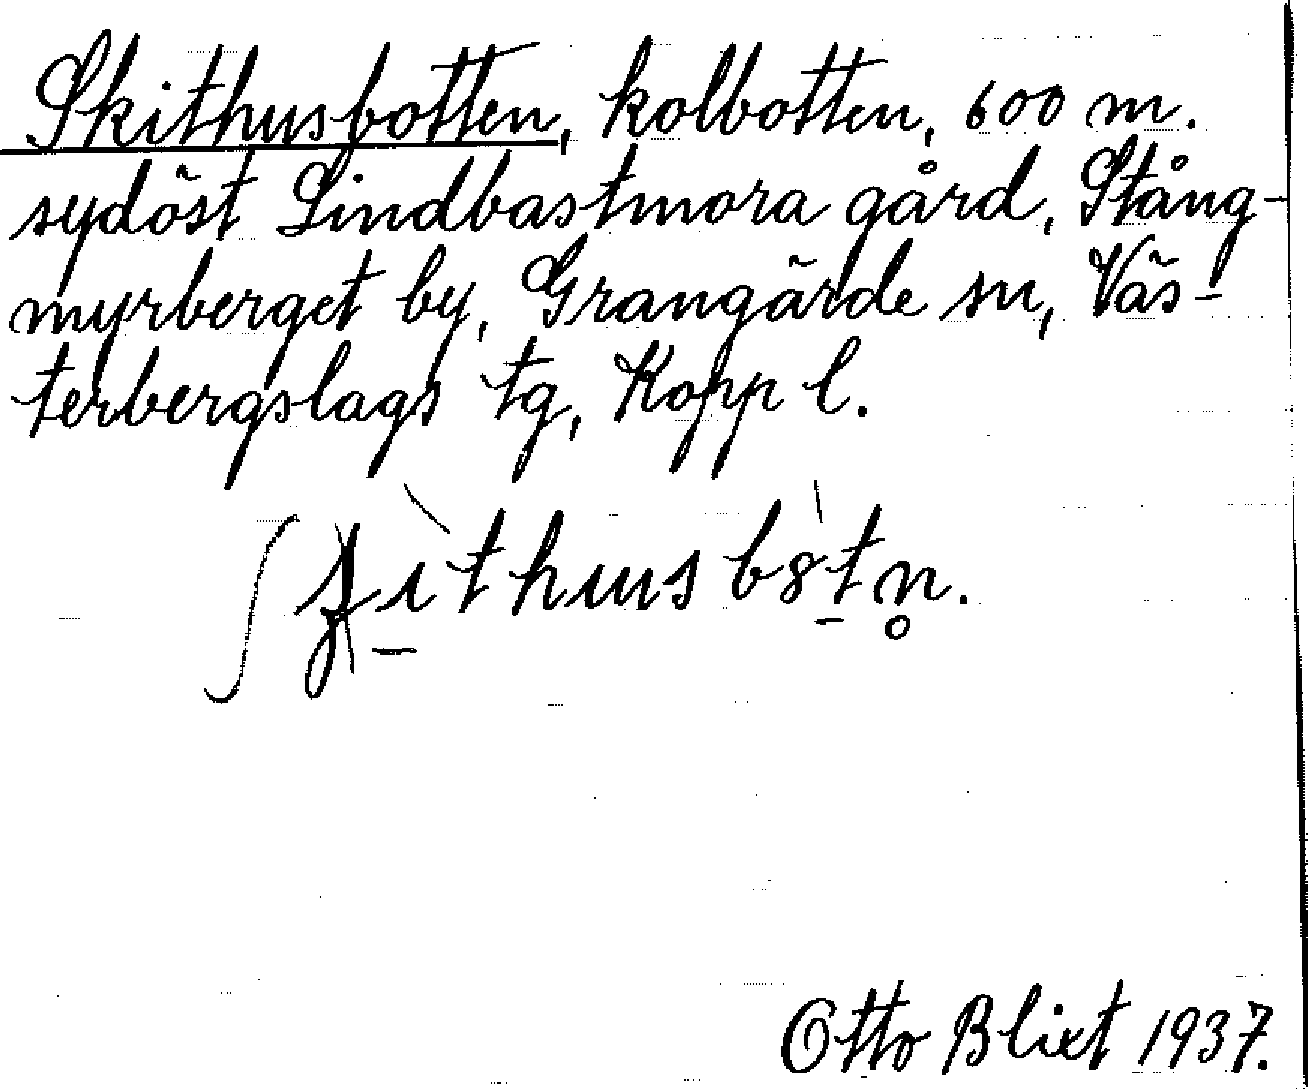 Skithusbotten, kolbotten, 600 m.
sydöst Lindbastmora gård, Stång-
myrberget by, Grangärde sn, Väs-
terbergslags tg, Kopp l.
ʃɪthusb8tn̥.
Otto Blixt 1937.